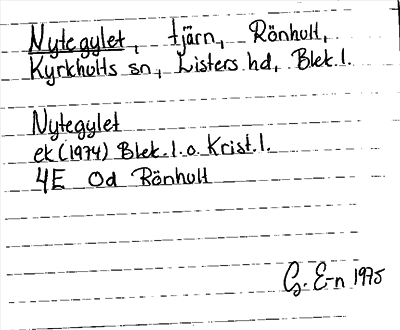 Nytegylet, tjärn, Rönhult,
Kyrkhults sn, Listers hd, Blek.l.
Nytegylet
ek (1974) Blek.l.o. Krist.l.
4E Od Rönhult
G. E-n 1975